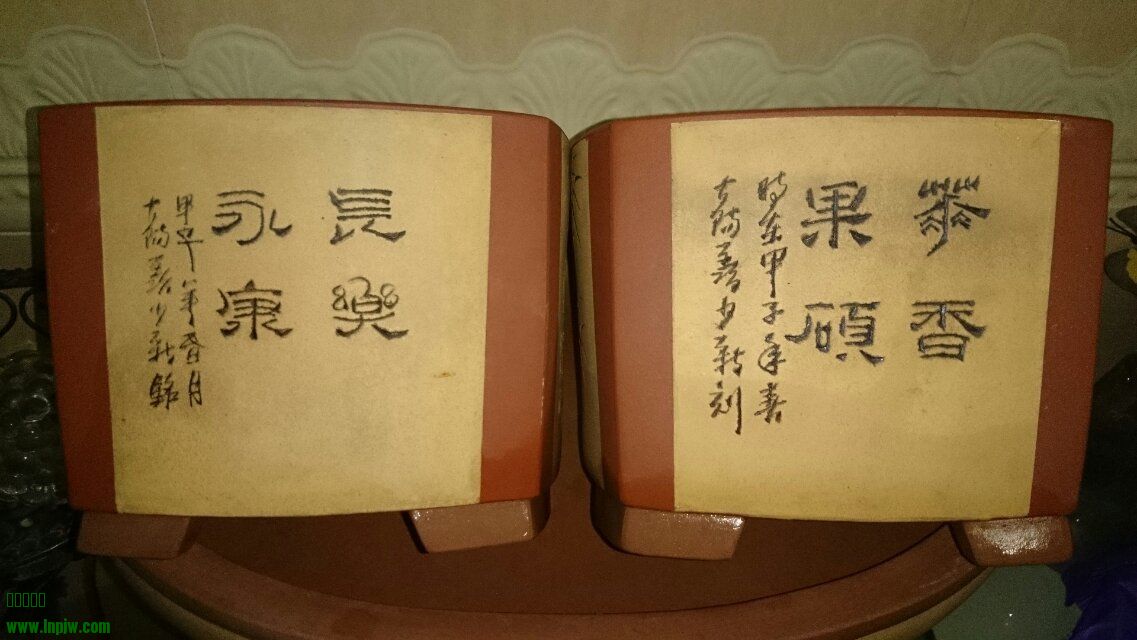 長樂
永康
甲午年春月
古陽羨少新銘
華香
果碩
時在甲子年春
古陽羨少新刻
www.lnpjw.com